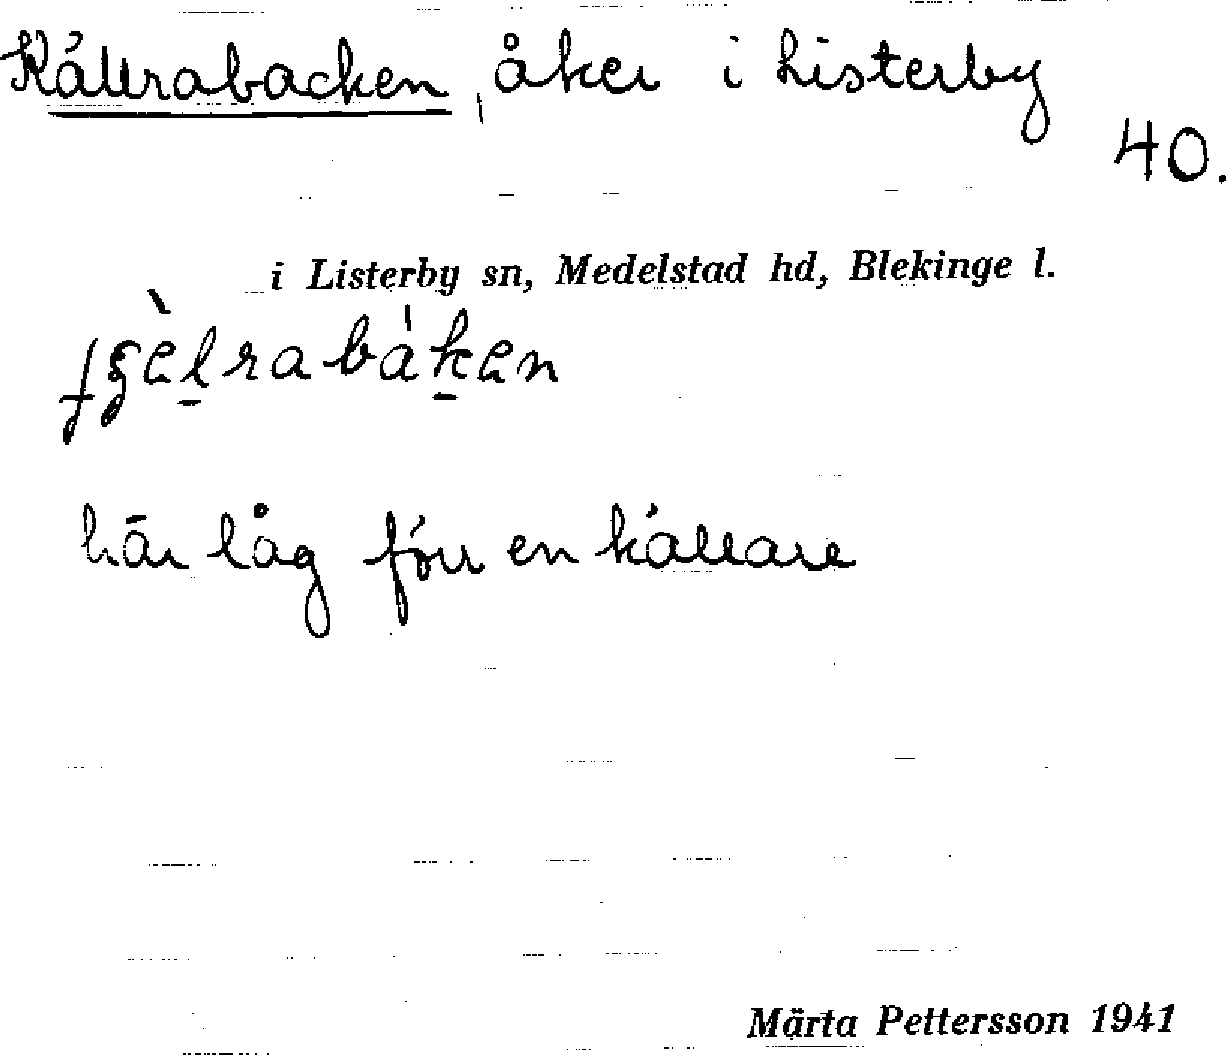 Källrabacken, åker i Listerby
40.
i Listerby sn, Medelstad hd, Blekinge l.
här låg förr en källare
Märta Pettersson 1941